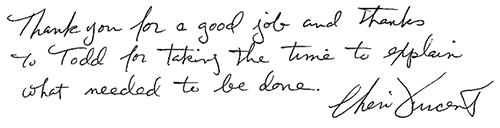 Thank you for a good job and thanks
to Todd for taking the time to explain
what needed to be done.
Cheri Vincent